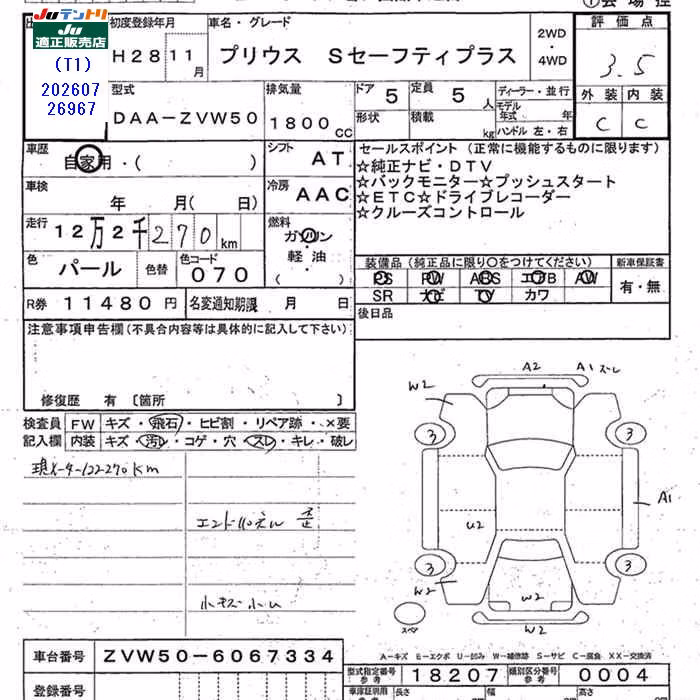 JUテントリ
JU
適正販売店
(T1)
202607
26967
初度登録年月
H28 11月
車名・グレード
プリウス Sセーフティプラス
2WD
・
4WD
評価点
3.5
外装 内装
C C
型式
DAA-ZVW50
排気量
1800cc
ドア 5
定員 5人
形状
積載 kg
ディーラー・並行
モデル年式 年
ハンドル 左・右
車歴
自家用・( )
シフト AT
セールスポイント (正常に機能するものに限ります)
☆純正ナビ・DTV
☆バックモニター☆プッシュスタート
☆ETC☆ドライブレコーダー
☆クルーズコントロール
車検
年 月( 日)
冷房 AAC
走行
12万2千270km
燃料
ガソリン
・
軽油
( )
色 パール
色替
色コード 070
装備品 (純正品に限り○をつけてください)
PS PW ABS エアB AW
SR ナビ TV カワ
新車保証書
有・無
R券 11480円
名変通知期限 月 日
後日品
注意事項申告欄 (不具合内容等は具体的に記入して下さい)
修復歴 有 〔箇所 〕
検査員記入欄
FW キズ・飛石・ヒビ割・リペア跡・×要
内装 キズ・汚れ・コゲ・穴・スレ・キレ・破レ
現メーター122270km
小キズ小凹
A2 A1
W2
3 3
A1
U2
3 3
W2 W2
W2
スペア
A-キズ E-エクボ U-凹み W-補修跡 S-サビ C-腐食 XX-交換済
車台番号 ZVW50-6067334
型式指定番号 参考 18207
類別区分番号 参考 0004
登録番号
車庫証明用 長さ 幅 高さ